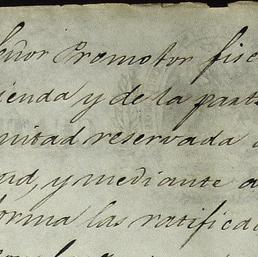 eñor Promotor fisc
ienda y de la parte
nidad reservada a
ord, y mediante a
forma las ratificad